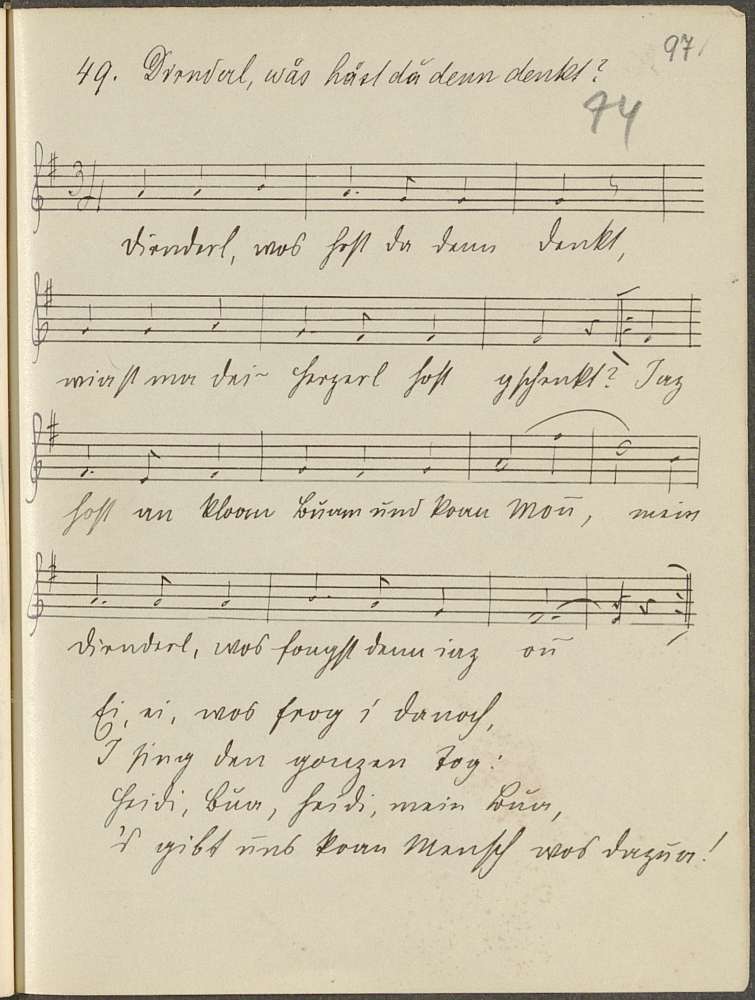 97
49. Dirnderl, wås håst då denn denkt?
74
3/4
Dirnderl, wos host da denn denkt,
wiast ma dei~ Herzerl host gschenkt? Jaz
host an kloan Buam und koan Mon̄, mein
Dirnderl, wos fongst denn iaz on̄
Ei, ei, wos frog i danoch,
I sing den gonzen Tog:
Heidi, Bua, heidi, mein Bua,
's gibt uns koan Mensch wos dazua!